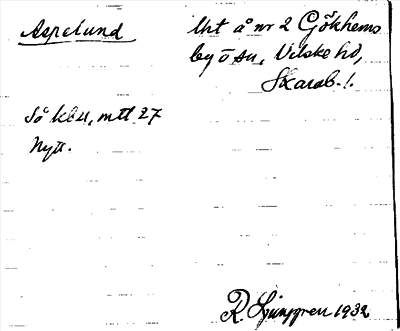 Aspelund
Uht å nr 2 Gökhems
by ö su, Vilske hd,
Skarab. l.
Så kbu, mtl 27
Nytt.
R. Ljunggren 1932